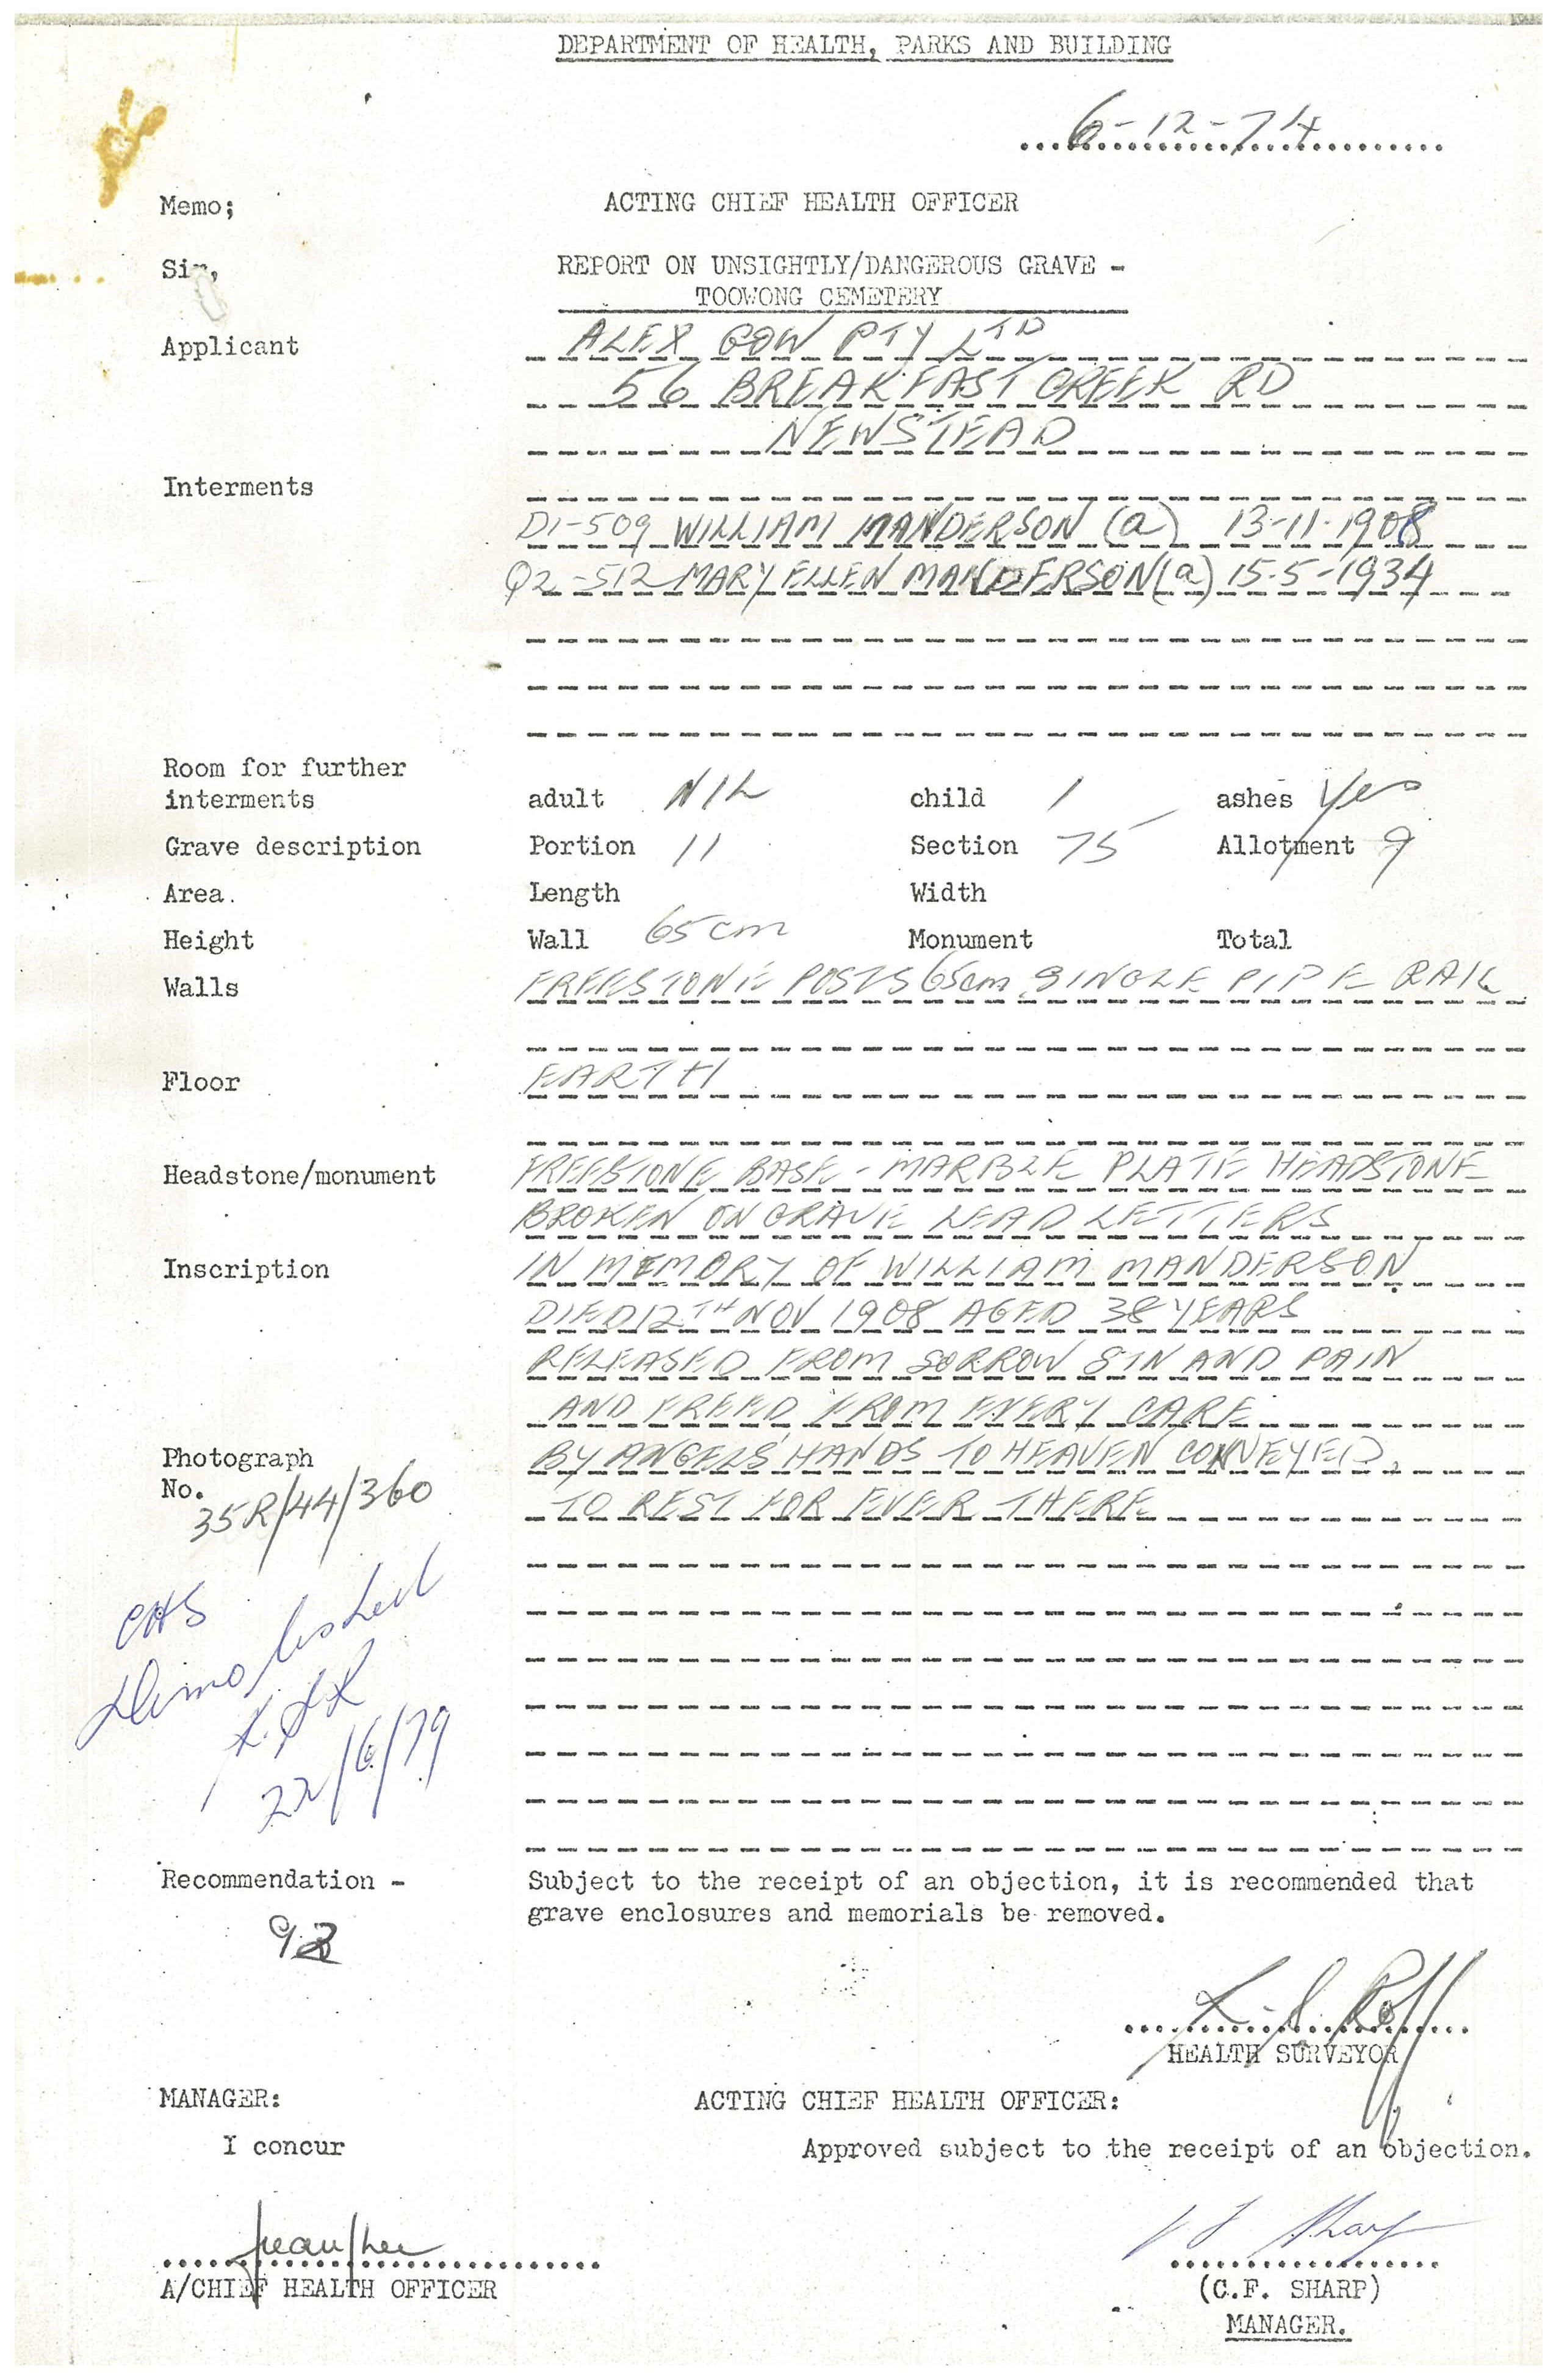 DEPARTMENT OF HEALTH, PARKS AND BUILDING
6-12-74
Memo; ACTING CHIEF HEALTH OFFICER
Sir, REPORT ON UNSIGHTLY/DANGEROUS GRAVE -
TOOWONG CEMETERY
Applicant ALEX GOW PTY LTD
56 BREAKFAST CREEK RD
NEWSTEAD
Interments
D1-509 WILLIAM MANDERSON (a) 13-11-1908
Q2-512 MARY ELLEN MANDERSON (a) 15-5-1934
Room for further
interments adult NIL child 1 ashes Yes
Grave description Portion 11 Section 75 Allotment 9
Area. Length Width
Height Wall 65cm Monument Total
Walls FREESTONE POSTS 65cm SINGLE PIPE RAIL
Floor EARTH
Headstone/monument FREESTONE BASE - MARBLE PLATE HEADSTONE
BROKEN ON GRAVE LEAD LETTERS
Inscription IN MEMORY OF WILLIAM MANDERSON
DIED 12TH NOV 1908 AGED 38 YEARS
RELEASED FROM SORROW SIN AND PAIN
AND FREED FROM EVERY CARE
Photograph BY ANGELS' HANDS TO HEAVEN CONVEYED,
No. 35R/44/360
TO REST FOR EVER THERE
CHS
Dimolished
22/6/79
Recommendation - Subject to the receipt of an objection, it is recommended that
grave enclosures and memorials be removed.
HEALTH SURVEYOR
MANAGER: ACTING CHIEF HEALTH OFFICER:
I concur Approved subject to the receipt of an objection.
A/CHIEF HEALTH OFFICER (C.F. SHARP)
MANAGER.